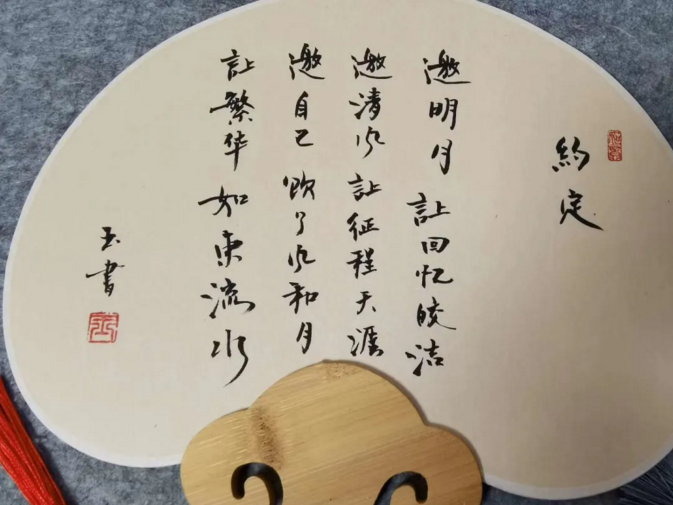 約定
邀明月 讓回忆皎洁
邀清风 讓征程天涯
邀自己 饮了风和月
讓繁华如东流水
玉書